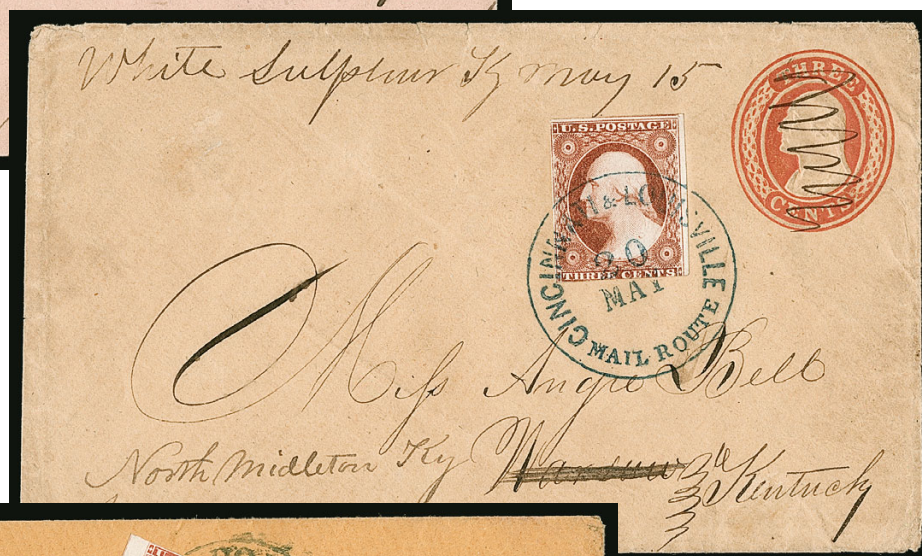 White Sulphur Ky May 15
THREE
CENTS
U.S. POSTAGE
THREE CENTS
CINCINNATI & LOUISVILLE
30
MAY
MAIL ROUTE
Miss Angie Bell
North Middleton Ky Warsaw Kentucky